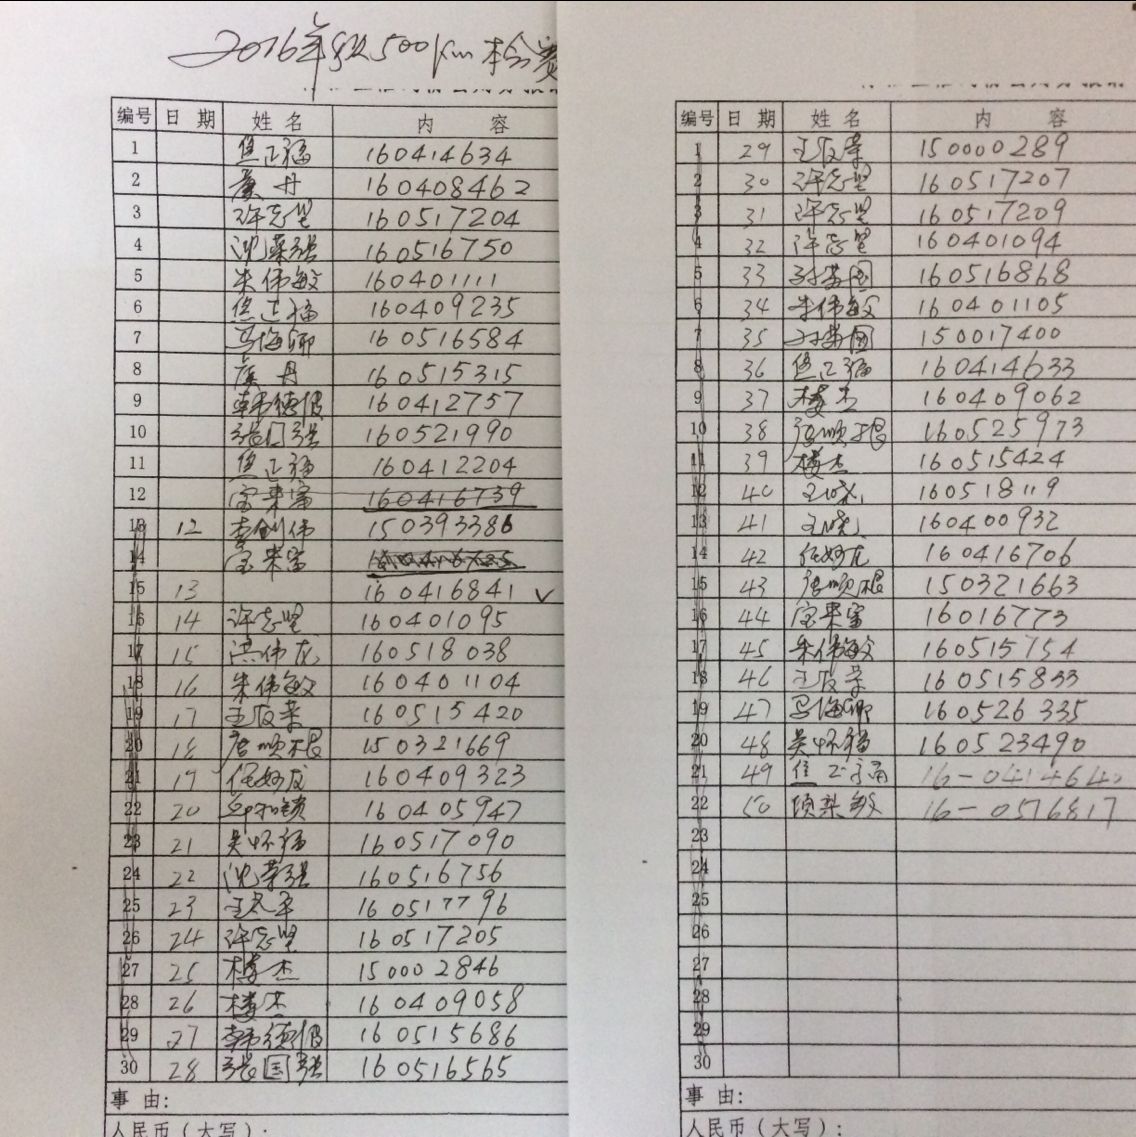 2016年秋500Km检赛
编号 日期 姓名 内容
1 焦正福 160414634
2 庞丹 160408462
3 许志坚 160517204
4 沈荣强 160516750
5 朱伟敏 160401111
6 焦正福 160409235
7 马海卿 160516584
8 庞丹 160515315
9 韩德俊 160412757
10 张国强 160521990
11 焦正福 160412204
12 宝来富 160416739
13 12 李剑伟 150393386
14 宝来富
15 13 160416841 √
16 14 许志坚 160401095
17 15 洪伟龙 160518038
18 16 朱伟敏 160401104
19 17 王友荣 160515420
20 18 唐顺根 150321669
21 19 任妙龙 160409323
22 20 160405947
23 21 吴怀福 160517090
24 22 沈荣强 160516756
25 23 王冬平 160517796
26 24 许志坚 160517205
27 25 楼杰 150002846
28 26 楼杰 160409058
29 27 韩德俊 160515686
30 28 张国强 160516565
事由:
人民币(大写):
编号 日期 姓名 内容
1 29 王友荣 150000289
2 30 许志坚 160517207
3 31 许志坚 160517209
4 32 许志坚 160401094
5 33 160516868
6 34 朱伟敏 160401105
7 35 150017400
8 36 焦正福 160414633
9 37 楼杰 160409062
10 38 唐顺根 160525973
11 39 楼杰 160515424
12 40 王晓 160518119
13 41 王晓 160400932
14 42 任妙龙 160416706
15 43 唐顺根 150321663
16 44 宝来富 16016773
17 45 朱伟敏 160515754
18 46 王友荣 160515833
19 47 马海卿 160526335
20 48 吴怀福 160523490
21 49 焦正福 16-0414640
22 50 顾荣敏 16-0516817
23
24
25
26
27
28
29
30
事由:
人民币(大写):